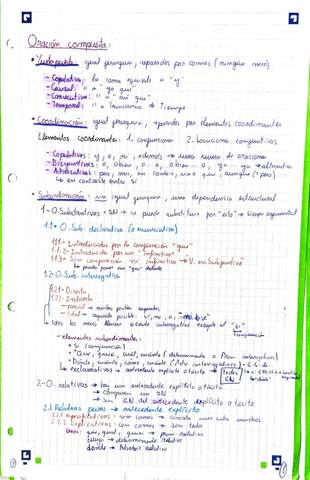 Oración compuesta:
• Yuxtapuesta: igual jerarquía, separadas por comas (ningún nexo)
- Copulativa: la coma equivale a "y"
- Causal: " a "ya que"
- Consecutiva: " a "así que"
- Temporal: " a Transcurso de Tiempo
• Coordinación: igual jerarquía, separadas por elementos coordinantes
Elementos coordinantes: 1. conjunciones 2. locuciones conjuntivas
- Copulativas: y, e, ni, además → suma de oraciones
- Disyuntivas: o, o bien
- Adversativas: pero, mas, sin embargo, sino que, aunque (= pero)
→ en contraste entre sí
• Subordinación: sin igual jerarquía, sino dependencia estructural
1-O. Substantivas → SN → se puede substituir por "esto" → siempre argumental
1.1- O. Sub. declarativa (o enunciativa)
1.1.1- Introducidas por la conjunción "que"
1.1.2- Introducidas por un "infinitivo"
1.1.3- Sin conjunción ni infinitivo → V. en Subjuntivo
→ puede poner un "que" delante
1.2- O. Sub. interrogativa
1.2.1- Directa
1.2.2- Indirecta
- parcial → muchas posibles respuestas
- total → respuesta posible: sí, no, o, "no lo sé"
→ todos los nexos llevan acento interrogativo excepto el "si"
conjunción
- elementos subordinantes:
• Si (conjunción)
• Qué, quién, cuál, cuánto (determinante o Pron. interrogativos)
• Dónde, cuándo, cómo, cuánto (Adv. interrogativos)
2-O. relativas → hay un antecedente explícito o tácito
→ son CN del antecedente explícito o tácito
2.1 Relativas puras → antecedente explícito
2.1.1 especificativas: sin comas → concreta uno entre muchos
2.1.2 Explicativas: con comas → son todos
Nexos: que, quien, → pron. relativo
cuyo → determinante relativo
donde → Adverbio relativo
1